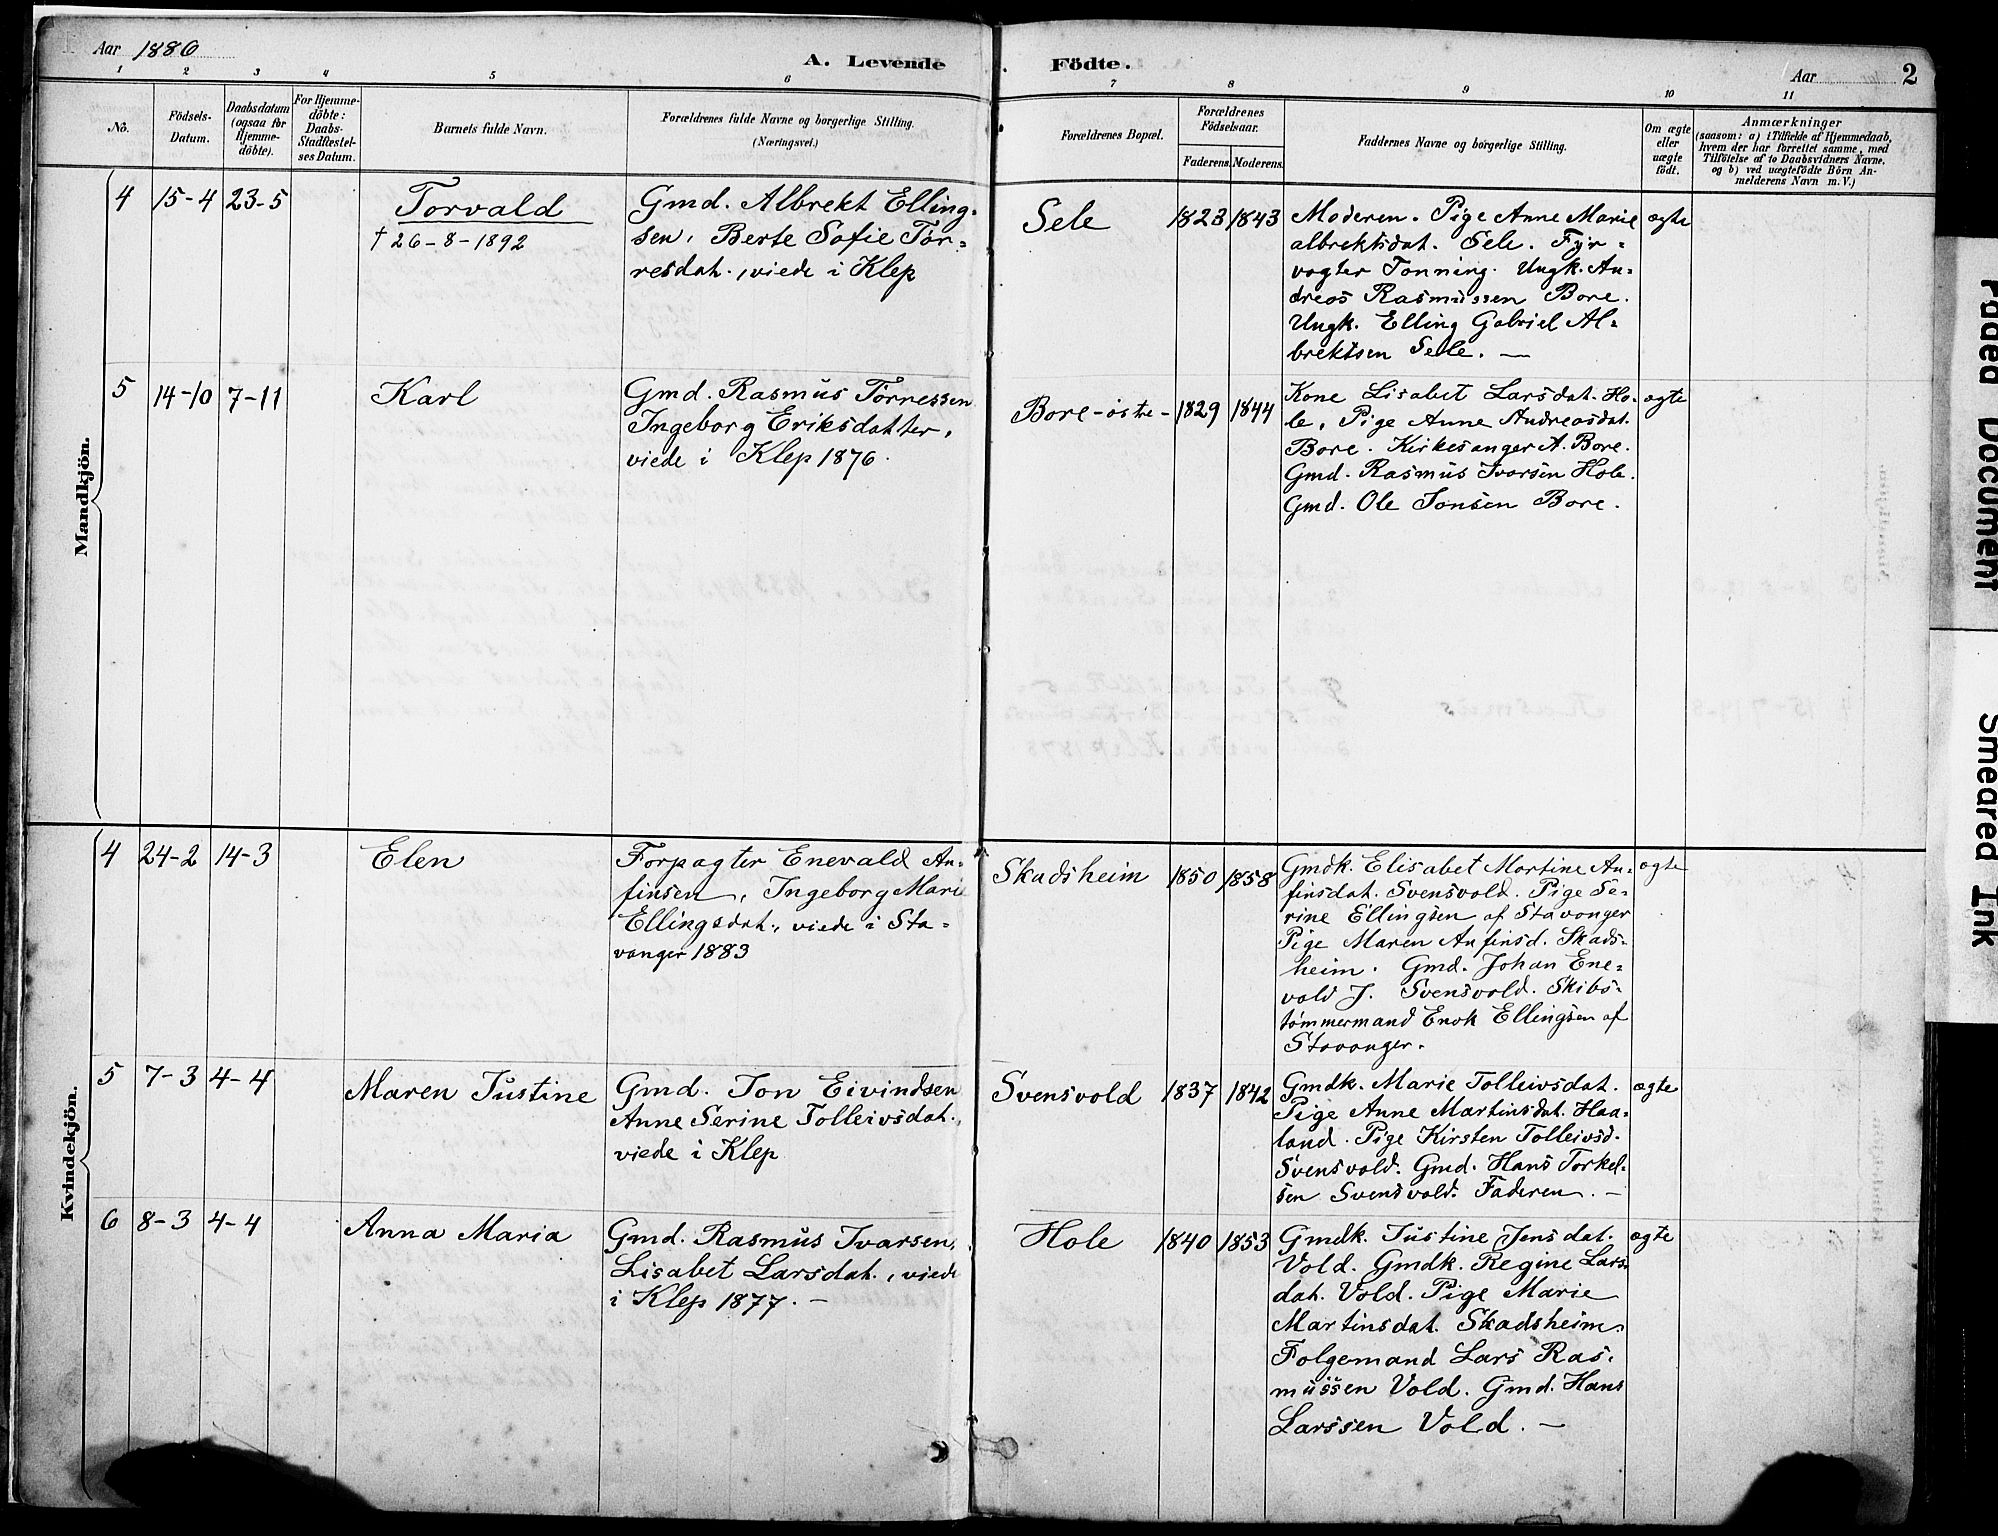 Aar 1886
A. Levende Födte.
Aar
2
1 2 3 4 5 6 7 8 9 10 11
No.
Födsels-
Datum.
Daabsdatum
(ogsaa for
Hjemme-
döbte).
For Hjemme-
döbte:
Daabs-
Stadfæstel-
ses Datum.
Barnets fulde Navn.
Forældrenes fulde Navne og borgerlige Stilling.
(Næringsvei.)
Forældrenes Bopæl.
Forældrenes
Födselsaar.
Faderens. Moderens.
Faddernes Navne og borgerlige Stilling.
Om ægte
eller
uægte
födt.
Anmærkninger
(saasom: a) i Tilfælde af Hjemmedaab,
hvem der har forrettet samme, med
Tilföielse af to Daabsvidners Navne,
og b) ved uægtefödte Börn An-
melderens Navn m. V.)
Mandkjön.
4 15-4 23-5
Torvald
† 26-8-1892
Gmd. Albrekt Elling-
sen, Berte Sofie Tør-
resdat., viede i Klep
Sele
1823 1843
Moderen. Pige Anne Marie
albrektsdat. Sele. Fyr-
vogter Tonning. Ungk. An-
dreas Rasmussen Bore.
Ungk. Elling Gabriel Al-
brektsen Sele. —
ægte
5 14-10 7-11
Karl
Gmd. Rasmus Tørressen
Ingeborg Eriksdatter,
viede i Klep 1876.
Bore-østre-
1829 1844
Kone Lisabet Larsdat. Ho-
le, Pige Anne Andreasdat.
Bore. Kirkesanger A. Bore.
Gmd. Rasmus Ivarsen Hole.
Gmd. Ole Jonsen Bore.
ægte
Kvindekjön.
4 24-2 14-3
Elen
Forpagter Enevald An-
finsen, Ingeborg Marie
Ellingsdat., viede i Sta-
vanger 1883
Skadsheim
1850 1858
Gmdk. Elisabet Martine An-
finsdat. Svensvold. Pige Se-
rine Ellingsen af Stavanger
Pige Maren Anfinsd. Skads-
heim. Gmd. Johan Ene-
vold J. Svensvold. Skibs-
tømmermand Enok Ellingsen af
Stavanger.
ægte
5 7-3 4-4
Maren Justine
Gmd. Jon Eivindsen
Anne Serine Tolleivsdat.,
viede i Klep
Svensvold
1837 1842
Gmdk. Marie Tolleivsdat.
Pige Anne Martinsdat. Haa-
land. Pige Kirsten Tolleivsd.
Svensvold. Gmd. Hans Torkel-
sen Svensvold. Faderen. —
ægte
6 8-3 4-4
Anna Maria
Gmd. Rasmus Ivarsen,
Lisabet Larsdat., viede
i Klep 1877. —
Hole
1840 1853
Gmdk. Justine Jensdat.
Vold. Gmdk. Regine Lars-
dat. Vold. Pige Marie
Martinsdat. Skadsheim.
Folgemand Lars Ras-
mussen Vold. Gmd. Hans
Larssen Vold. —
ægte
Faded Document
Smeared Ink